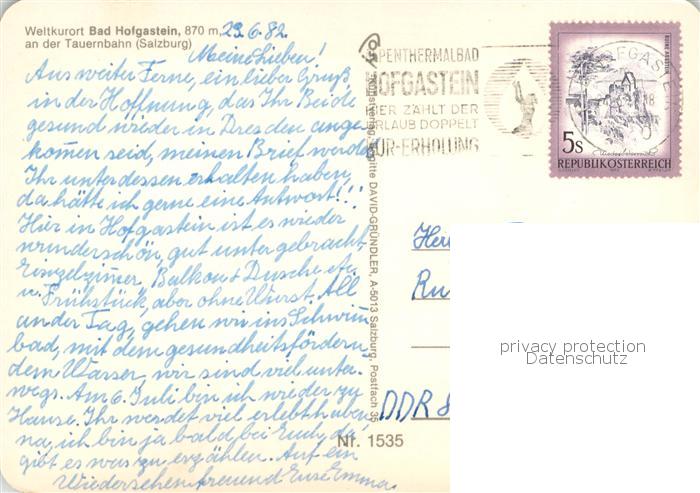 Weltkurort Bad Hofgastein, 870 m, 29.6.82
an der Tauernbahn (Salzburg)
Meine Lieben!
Aus weiter Ferne, ein lieber Gruß
in der Hoffnung, das Ihr Beide
gesund wieder in Dresden ange-
kom̅en seid, meinen Brief werdet
Ihr unterdessen erhalten haben,
da hätte ich gerne eine Antwort!!!
Hier in Hofgastein ist es wieder
wunderschön, gut untergebracht,
Einzelzim̅er, Balkon + Dusche etc.
u. Frühstück, aber ohne Wurst. All
ander Tag, gehen wir ins Schwim̅
bad, mit dem gesundheitsfördern
dem Wasser, wir sind viel unter-
wegs. Am 6. Juli bin ich wieder zu
Hause. Ihr werdet viel erlebt haben
na, ich bin ja bald bei Euch, da
gibt es was zu erzählen. Auf ein
Wiedersehen freuend Eure Emma.
Kunstverlag Brigitte DAVID-GRÜNDLER, A-5013 Salzburg, Postfach 35
Nr. 1535
ALPENTHERMALBAD
HOFGASTEIN
HIER ZÄHLT DER
URLAUB DOPPELT
KUR-ERHOLUNG
HOFGASTEIN
18
RUINE AGGSTEIN
5s
REPUBLIK ÖSTERREICH
DDR 8
privacy protection
Datenschutz